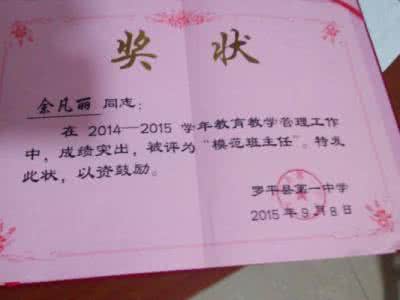 奖状
余凡丽 同志:
在 2014—2015 学年教育教学管理工作
中，成绩突出，被评为“模范班主任”。特发
此状，以资鼓励。
罗平县第一中学
2015 年 9 月 8 日